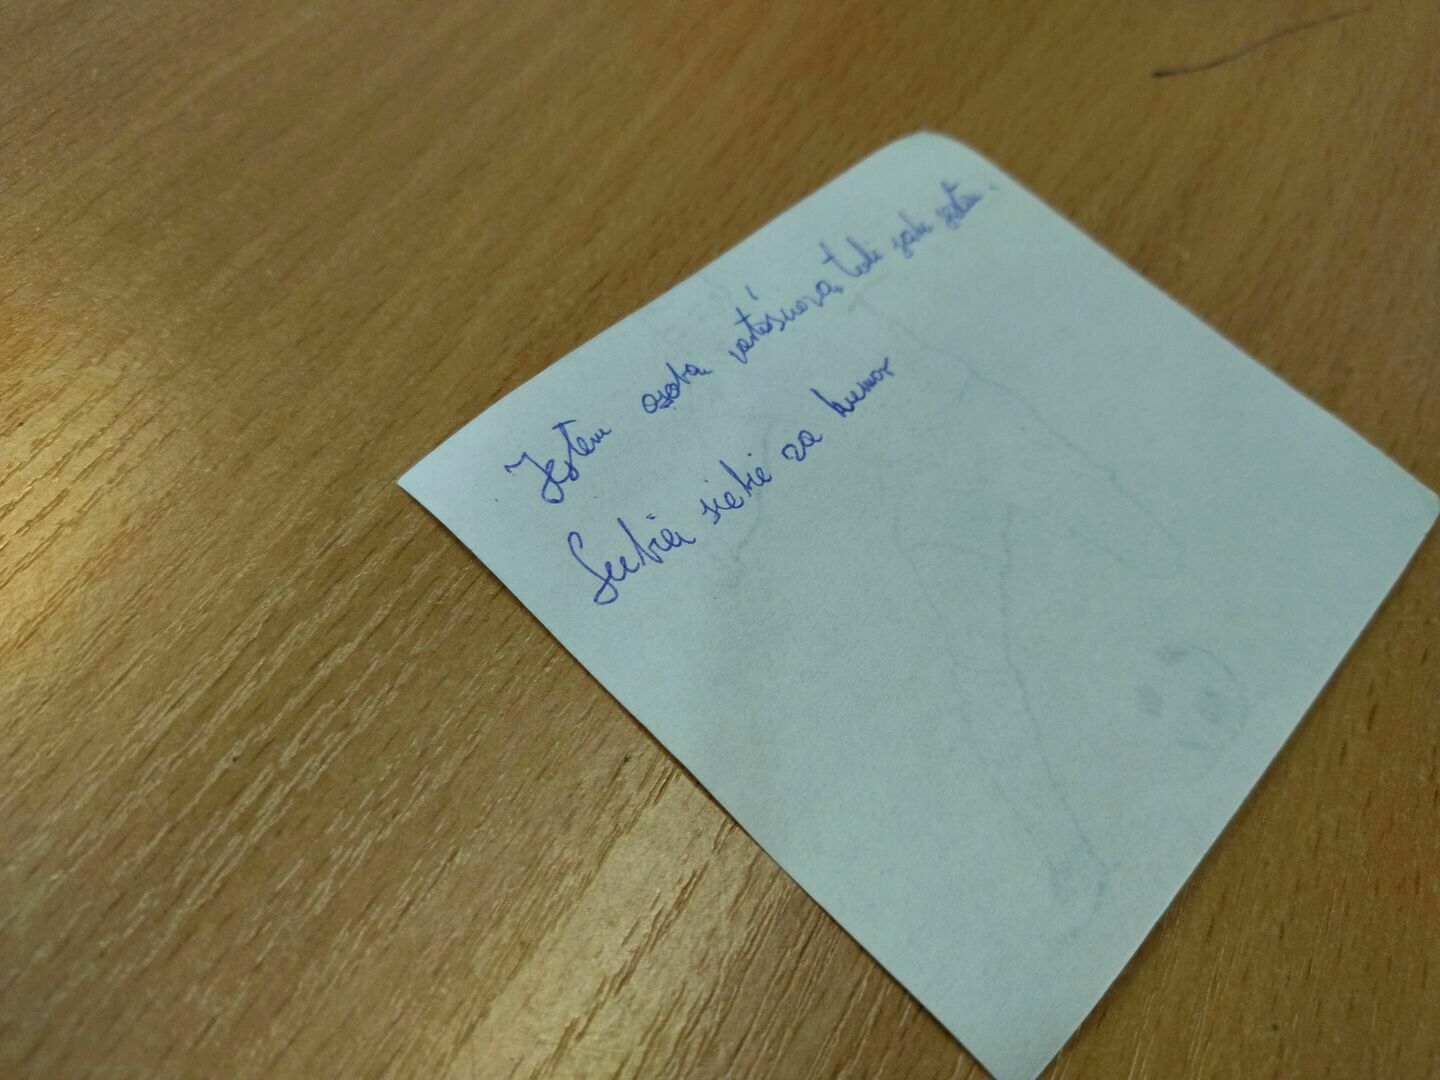 Jestem osobą wartościową, taką jaką jestem.
Lubię siebie za humor